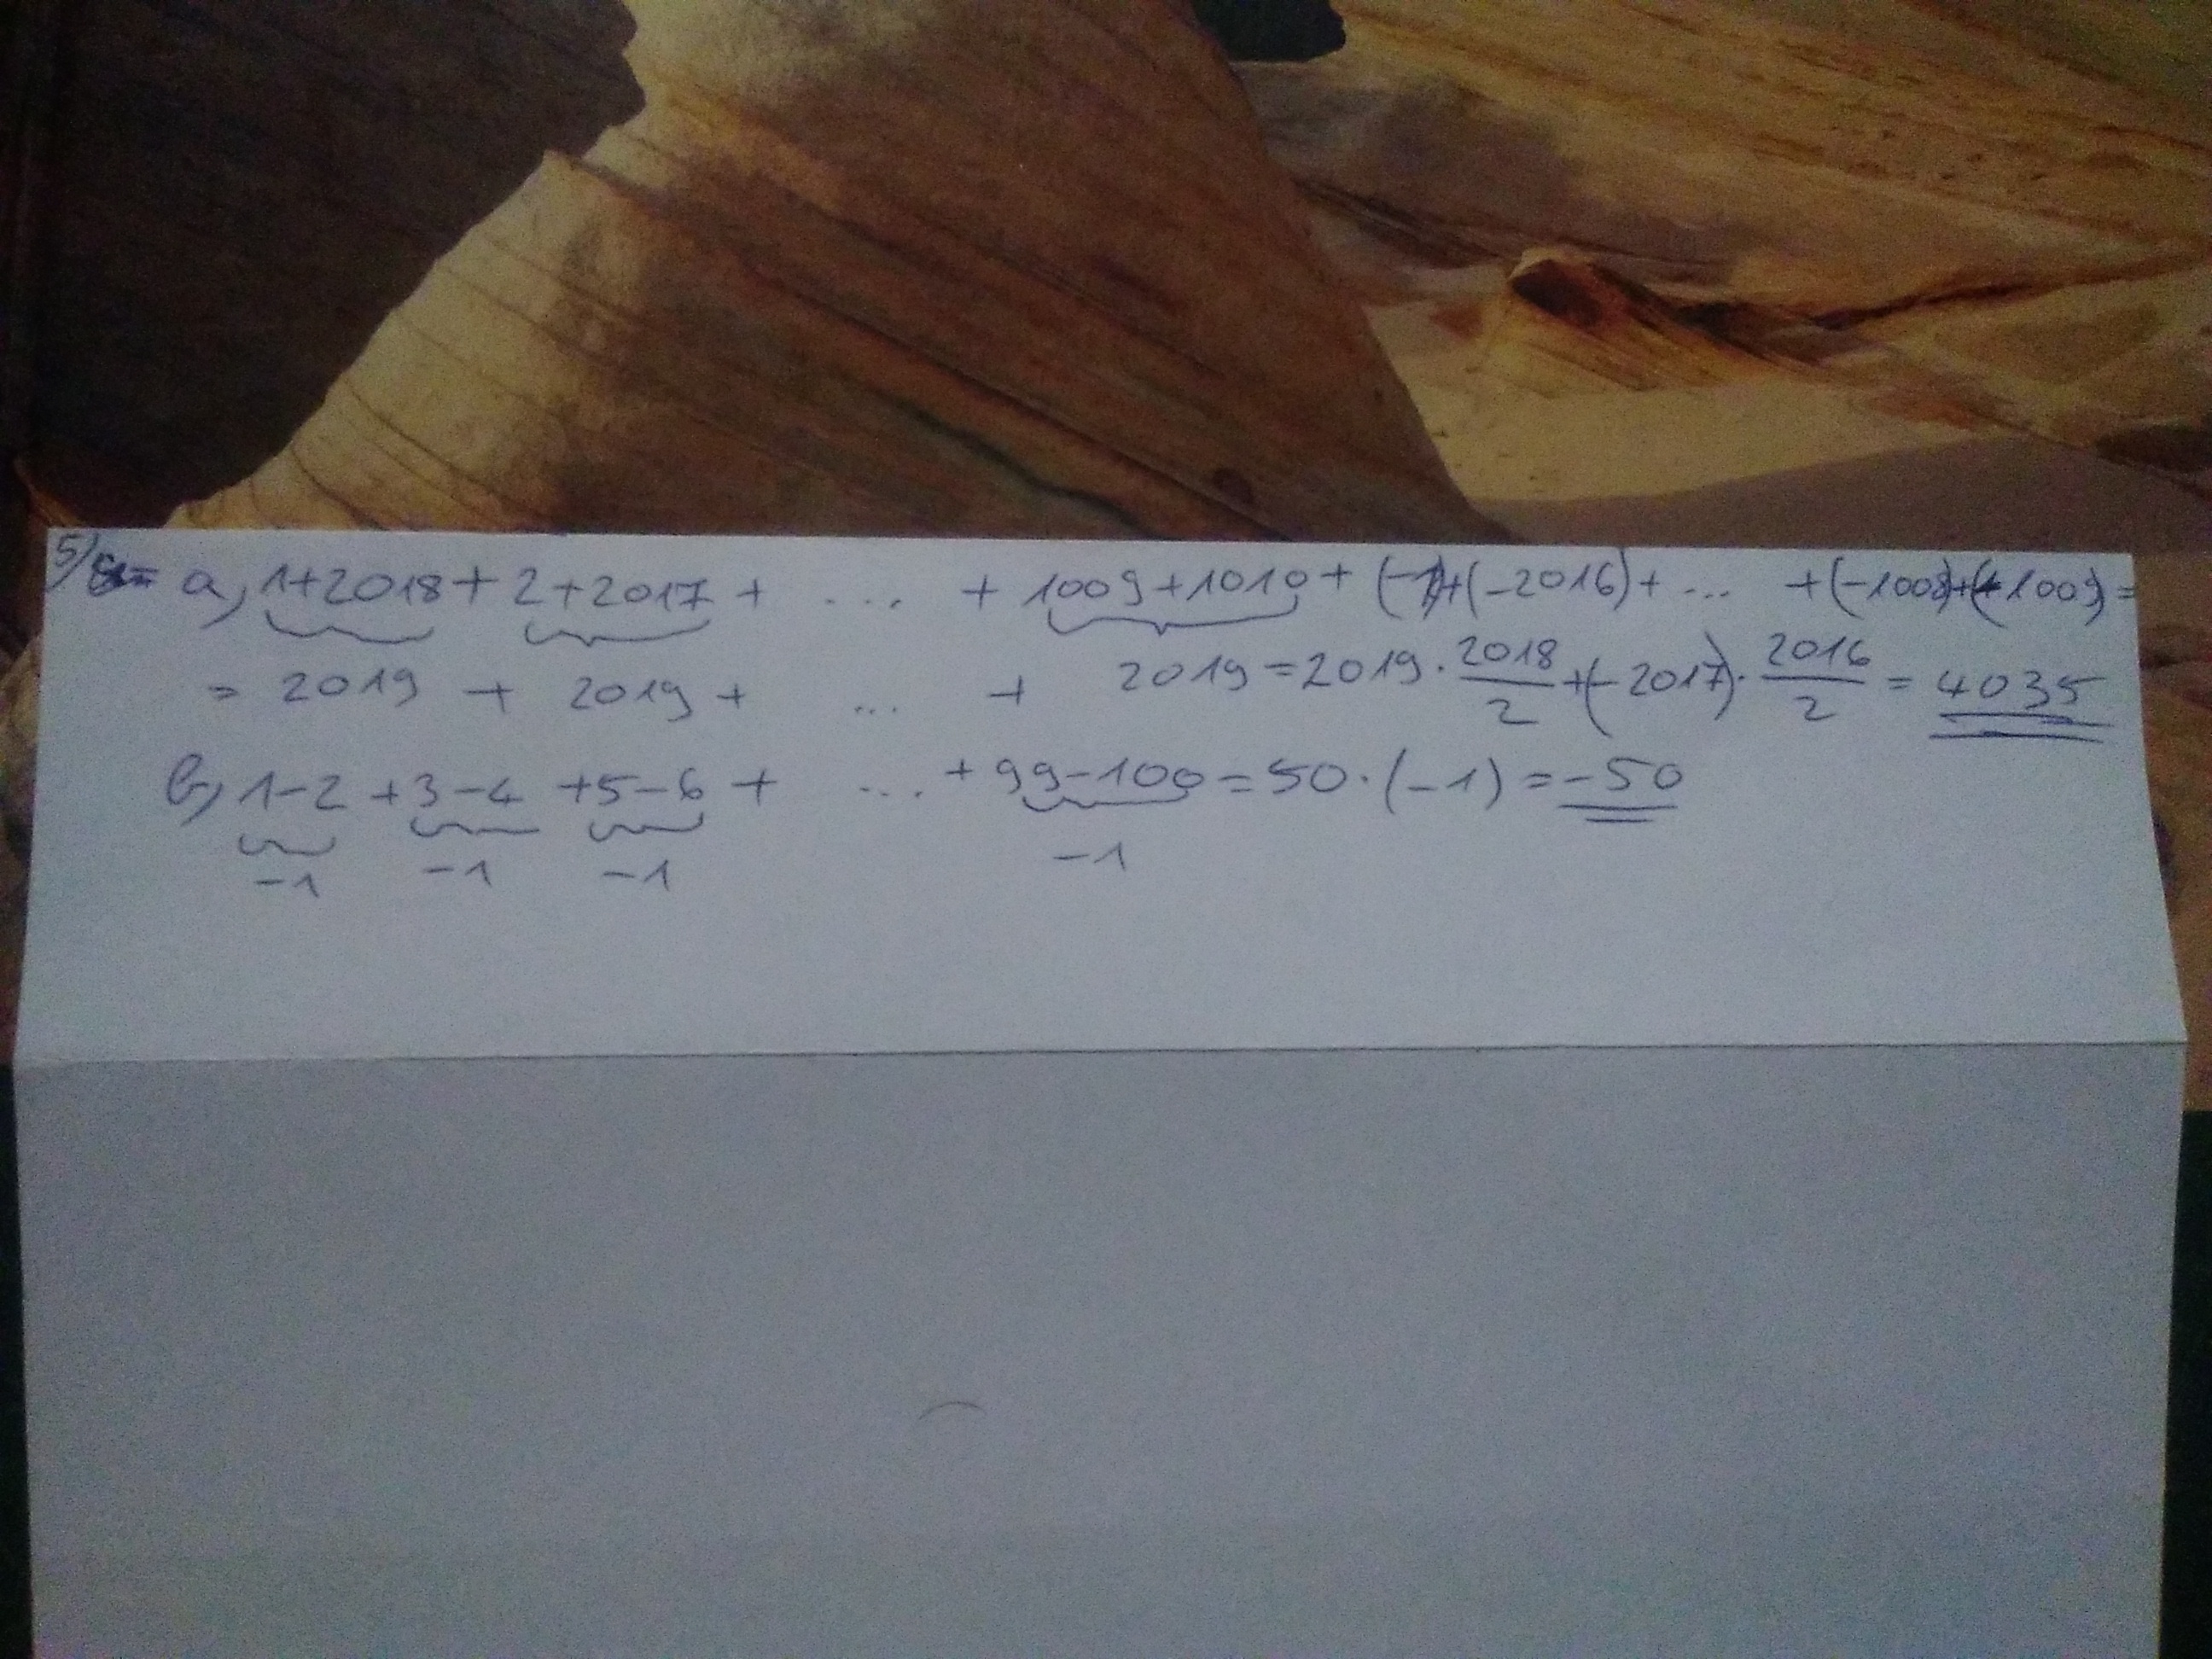 5/ a, 1+2018+2+2017+ ... +1009+1010+(-1)+(-2016)+ ... +(-1008)+(-1009)=
= 2019 + 2019 + ... + 2019 = 2019 · 2018/2 + (-2017) · 2016/2 = 4035
b, 1-2 +3-4 +5-6 + ... +99-100 = 50 · (-1) = -50
-1 -1 -1 -1